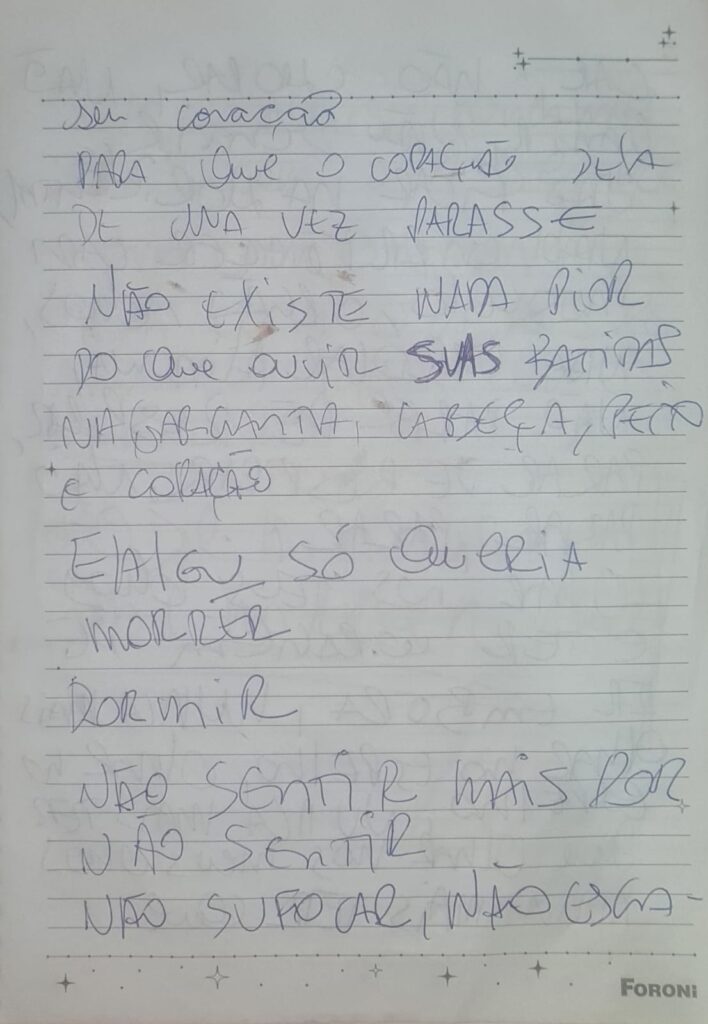 seu coração
PARA QUE O CORAÇÃO DELA
DE UMA VEZ PARASSE
NÃO EXISTE NADA PIOR
DO QUE OUVIR SUAS BATIDAS
NA GARGANTA, CABEÇA, PEITO
E CORAÇÃO
SÓ QUERIA
MORRER
DORMIR
NÃO SENTIR MAIS POR
NÃO SENTIR
NÃO SUFOCAR, NÃO ESGA-
FORONI